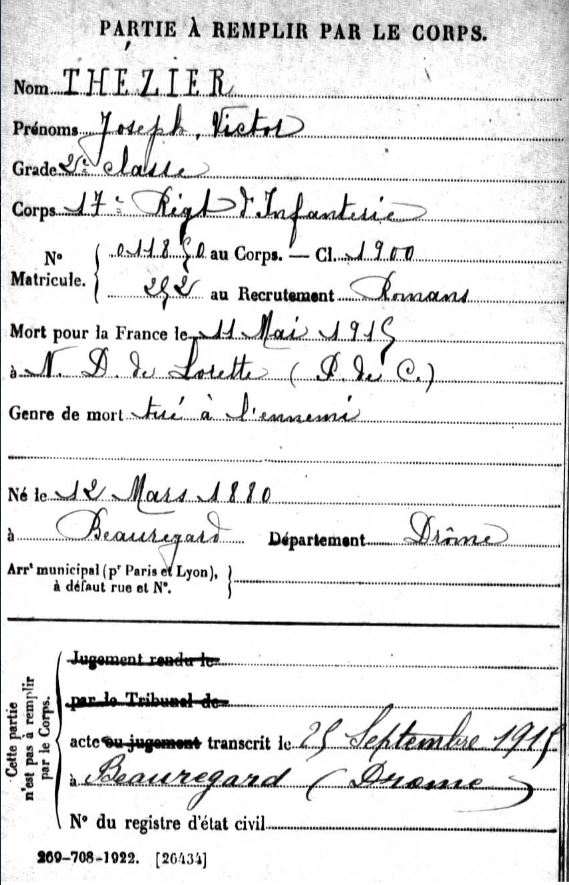 PARTIE À REMPLIR PAR LE CORPS.
Nom THÉZIER
Prénoms Joseph, Victor
Grade 2e classe
Corps 17e Régt d'Infanterie
No Matricule. 011850 au Corps. — Cl. 1900
252 au Recrutement Romans
Mort pour la France le 11 Mai 1915
à N. D. de Lorette (P. de C.)
Genre de mort tué à l'ennemi
Né le 12 Mars 1880
à Beauregard Département Drôme
Arrt municipal (pr Paris et Lyon),
à défaut rue et No.
Cette partie
n'est pas à remplir
par le Corps.
Jugement rendu le
par le Tribunal de
acte ou jugement transcrit le 25 Septembre 1915
à Beauregard (Drome)
No du registre d'état civil
269-708-1922. [26434]